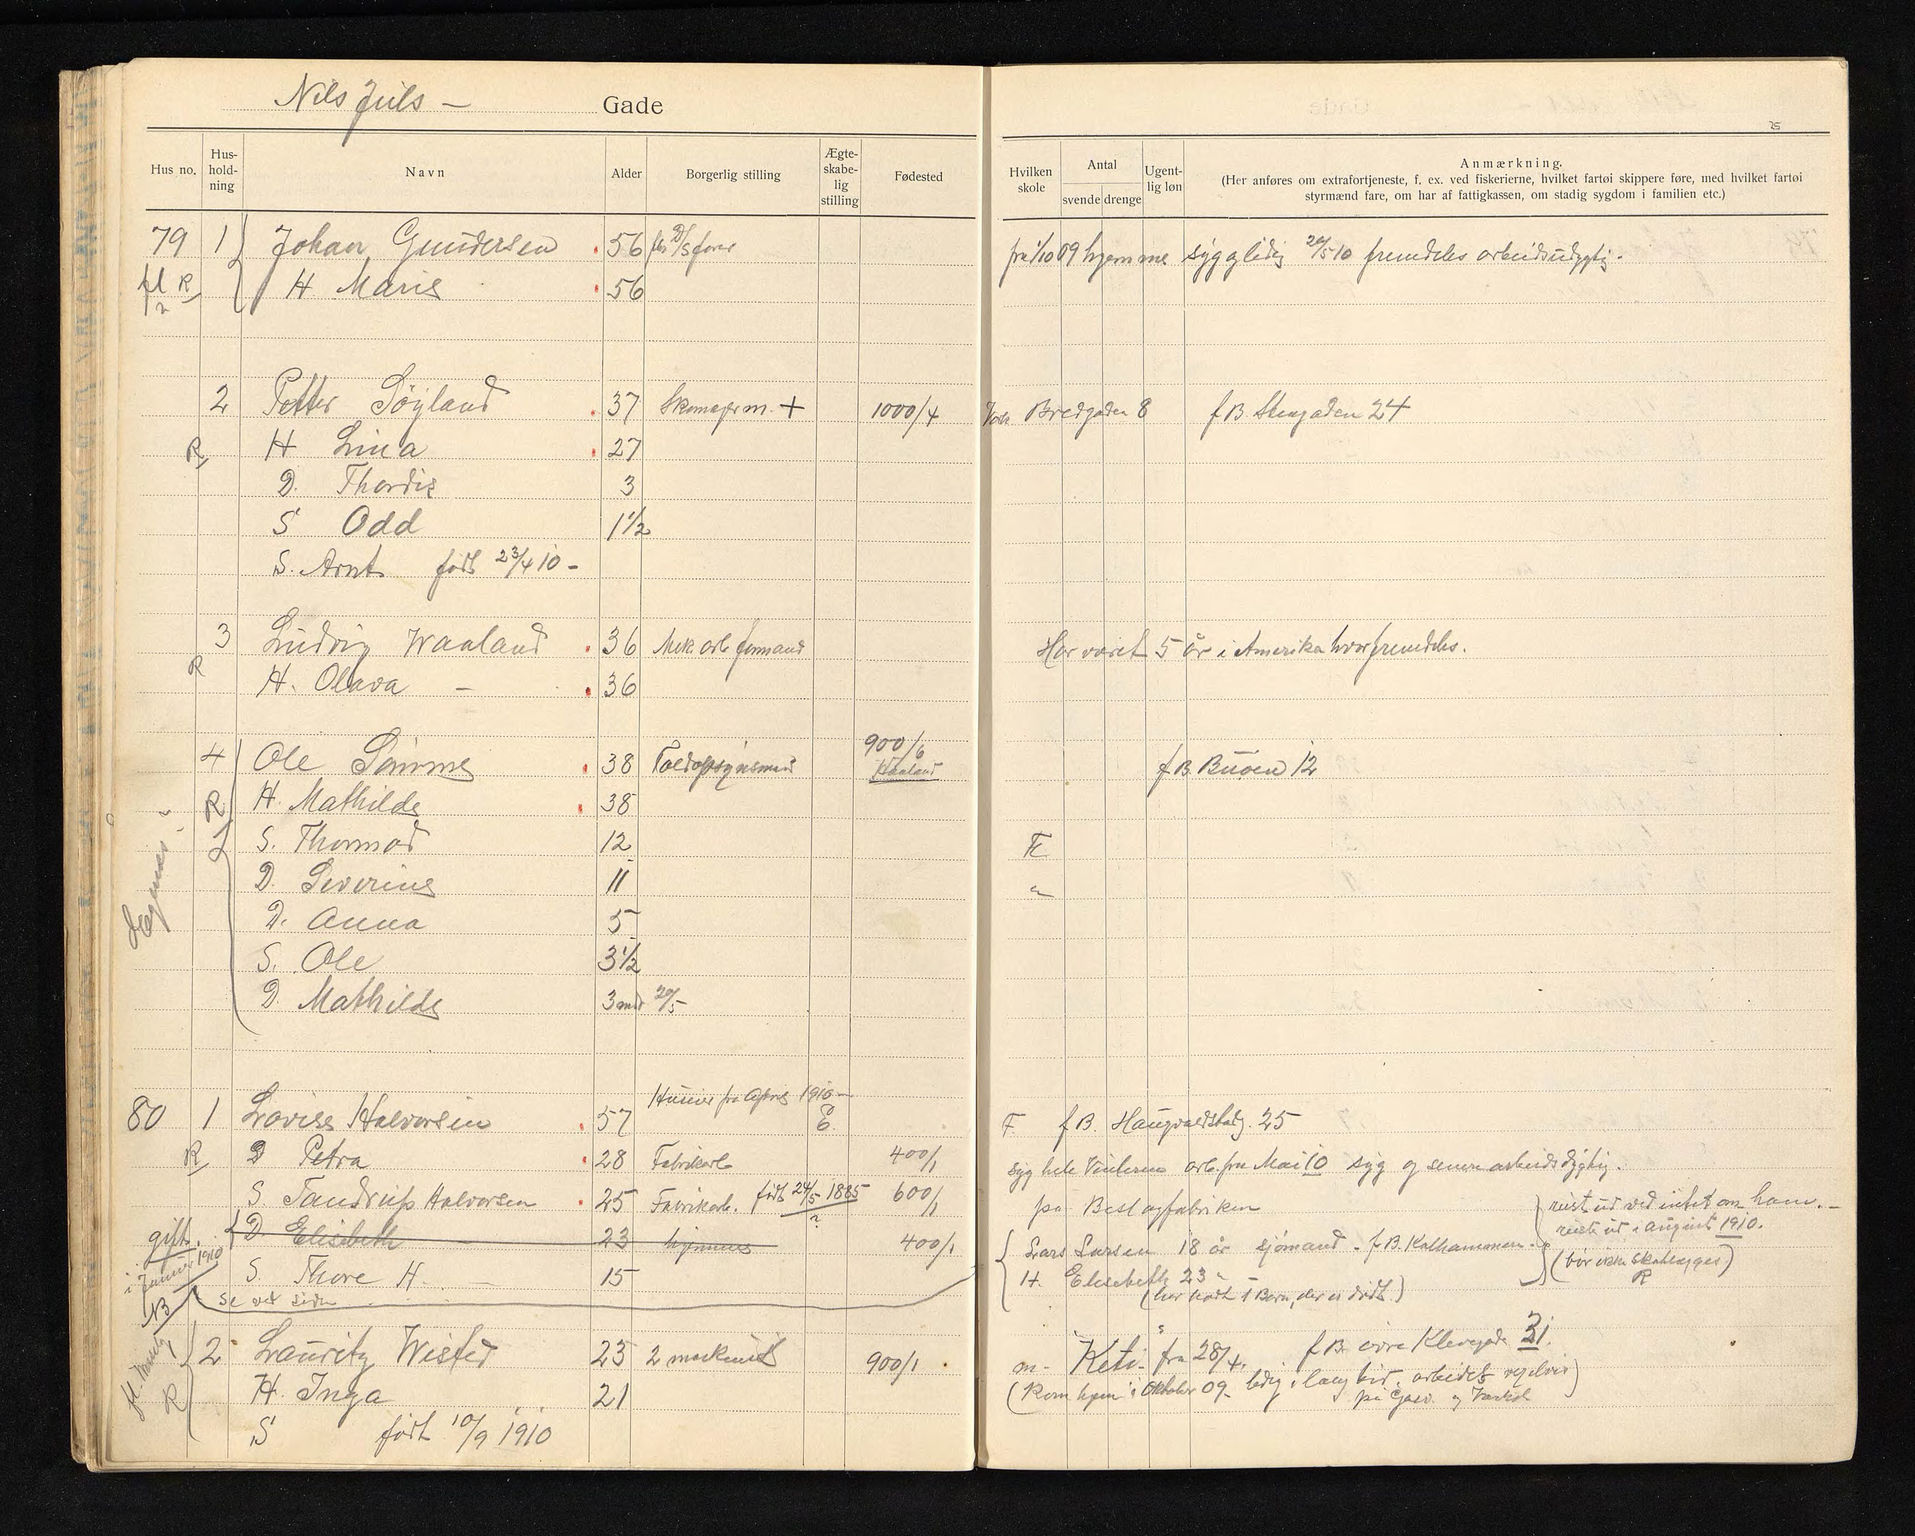 Nils Juels – Gade
Hus no. Hus-hold-ning Navn Alder Borgerlig stilling Ægte-skabe-lig stilling Fødested
Hvilken skole Antal svende drenge Ugent-lig løn Anmærkning.
(Her anføres om extrafortjeneste, f. ex. ved fiskerierne, hvilket fartøi skippere føre, med hvilket fartøi
styrmænd fare, om har af fattigkassen, om stadig sygdom i familien etc.)
79 1 Johan Gundersen 56 D/S fører fra 1/10 09 hjemme sygelidig 20/5 10 fremdeles arbeidsudygtig.
fl R H Marie 56
2 Petter Søyland 37 Skomagerm. + 1000/4 Bredgaden 8 f B. Stengaden 24
R H Lina 27
D. Thordis 3
S Odd 1 1/2
S. Arnt født 23/4 10 –
3 Ludvig Waaland 36 Mek arb formand Har været 5 år i Amerika hvor fremdeles.
R H. Olava – 36
4 Ole Sømme 38 Toldopsynsmand 900/6 Haaland f B Buøen 12
R H. Mathilde 38
S. Thormod 12 Fc
D. Severine 11 "
D. Anna 5
S. Ole 3 1/2
D. Mathilde 3 mdr 20/5
80 1 Lovise Halvorsen 57 Huseier fra April 1910 – E F f B. Haugvaldstadg. 25
R D Petra 28 Fabrikarb 400/1 syg hele Vinteren arb. fra Mai 10 syg og senere arbeidsdygtig.
S. Tandrup Halvorsen 25 Fabrikarb. født 24/5 1885 600/1 på Beslagfabriken
gift. D. Elisabeth 23 hjemme 400/1 Lars Larsen 18 år sjømand – f B. Kalhammeren.
i Januar 1910 S. Thore H. – 15 H. Elisabeth 23 "
reist ud ved intet om ham. –
reist ud i august 1910.
(bør ikke skatlægges)
R
NB se ved siden (har havt 1 Barn, der er dødt.)
2 Lauritz Wisted 23 2 maskinist 900/1 "Keti" fra 28/4. f B. øvre Klevegade 31.
R H. Inga 21 (Kom hjem i Oktober 09 – ledig i lang tid, arbeidet
på Gasv. og
S født 10/9 1910